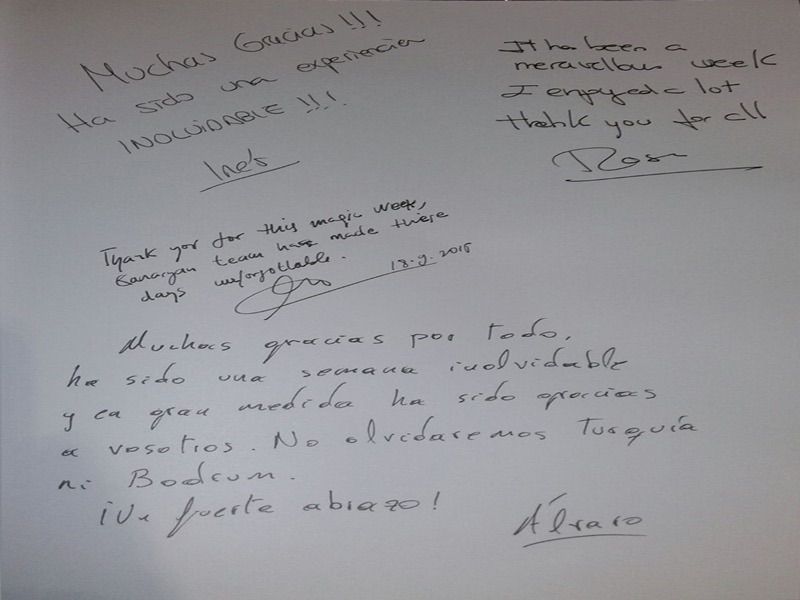 Muchas Gracias !!!
Ha sido una experiencia
INOLVIDABLE !!!
Inés
It has been a
meravellous week
I enjoyed a lot
thank you for all
Rosa
Thank you for this magic week,
team has made these
days unforgottable.
18.9.2015
Muchas gracias por todo,
ha sido una semana inolvidable
y en gran medida ha sido gracias
a vosotros. No olvidaremos Turquía
ni Bodrum.
¡Un fuerte abrazo!
Álvaro